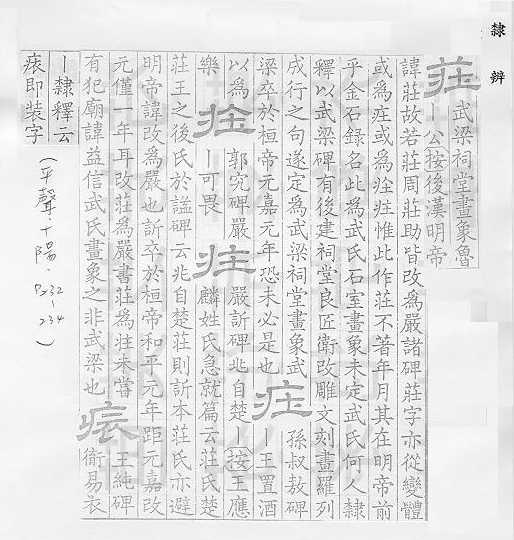 隸辨
莊
武梁祠堂畫象魯
丨公按後漢明帝
諱莊故若莊周莊助皆改為嚴諸碑莊字亦從變體
或為庄或為疰惟此作莊不著年月其在明帝前
乎金石錄名此為武氏石室畫象未定武氏何人隸
釋以武梁碑有後建祠堂良匠衛改雕文刻畫羅列
成行之句遂定為武梁祠堂畫象武
梁卒於桓帝元嘉元年恐未必是也
孫叔敖碑
丨王置酒
以為
樂
郭究碑嚴
丨可畏
嚴訢碑兆自楚丨按王應
麟姓氏急就篇云莊氏楚
莊王之後氏於諡碑云兆自楚莊則訢本莊氏亦避
明帝諱改為嚴也訢卒於桓帝和平元年距元嘉改
元僅一年耳改莊為嚴書莊為未嘗
有犯廟諱益信武氏畫象之非武梁也
王純碑
衞易衣
丨隸釋云
即裝字
(平聲十陽·P232-234)